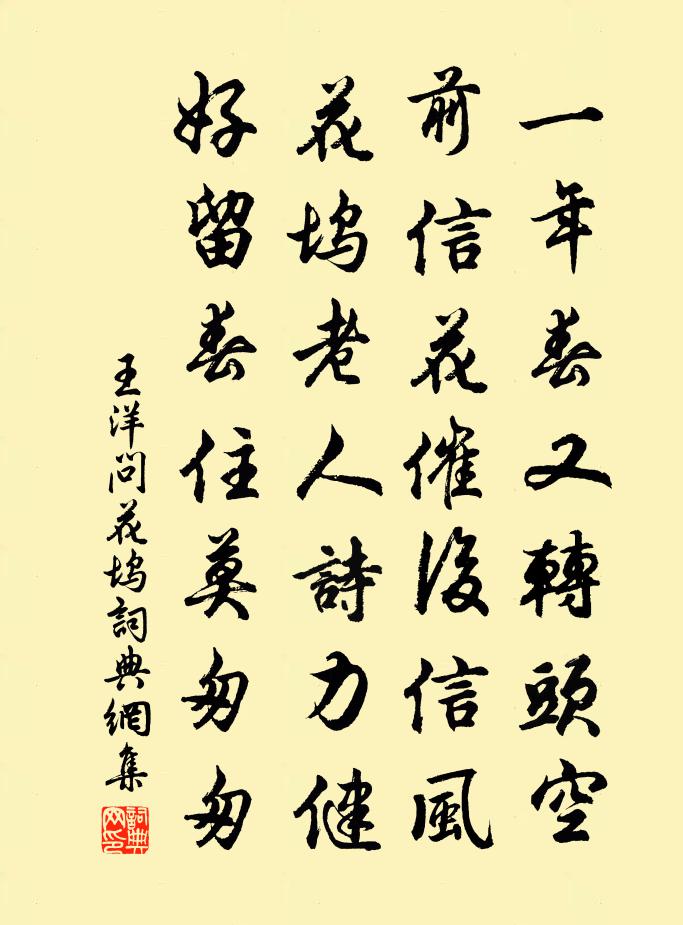 一年春又轉頭空
前信花催後信風
花坞老人詩力健
好留春住莫匆匆
王洋問花坞詞典網集
詞典網印